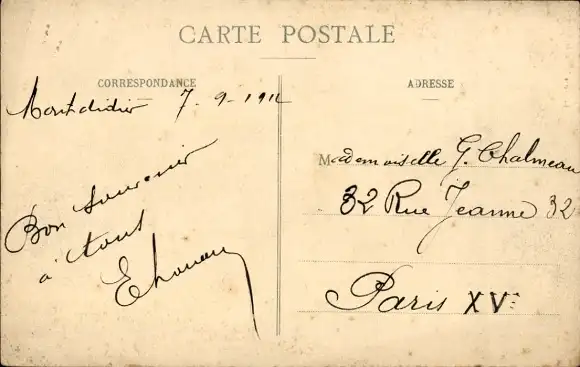 CARTE POSTALE
CORRESPONDANCE
Montdidier 7-9-191
Bon souvenir
à tous
ADRESSE
Mademoiselle G. Chalmeau
32 Rue Jeanne 32
Paris XVe